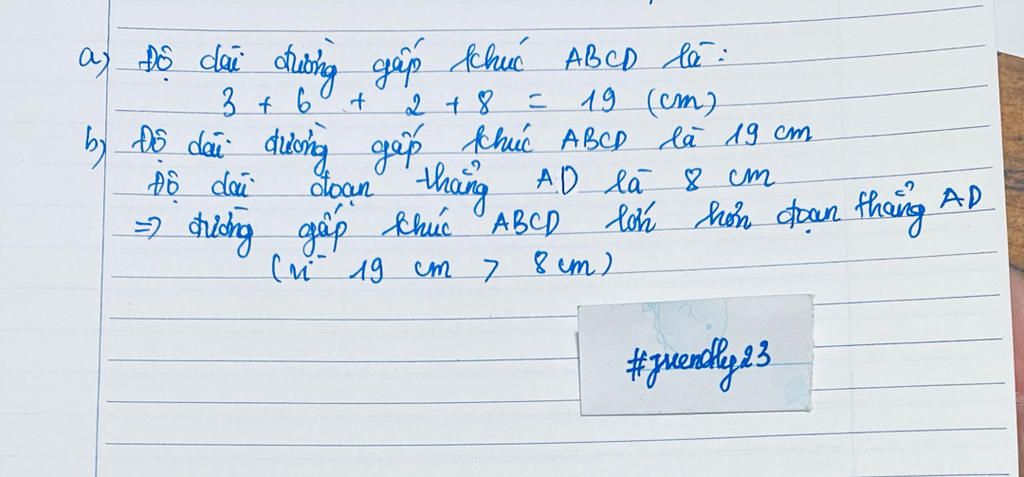 a) Độ dài đường gấp khúc ABCD là:
3 + 6 + 2 + 8 = 19 (cm)
b) Độ dài đường gấp khúc ABCD là 19 cm
Độ dài đoạn thẳng AD là 8 cm
=> đường gấp khúc ABCD lớn hơn đoạn thẳng AD
(vì 19 cm > 8 cm)